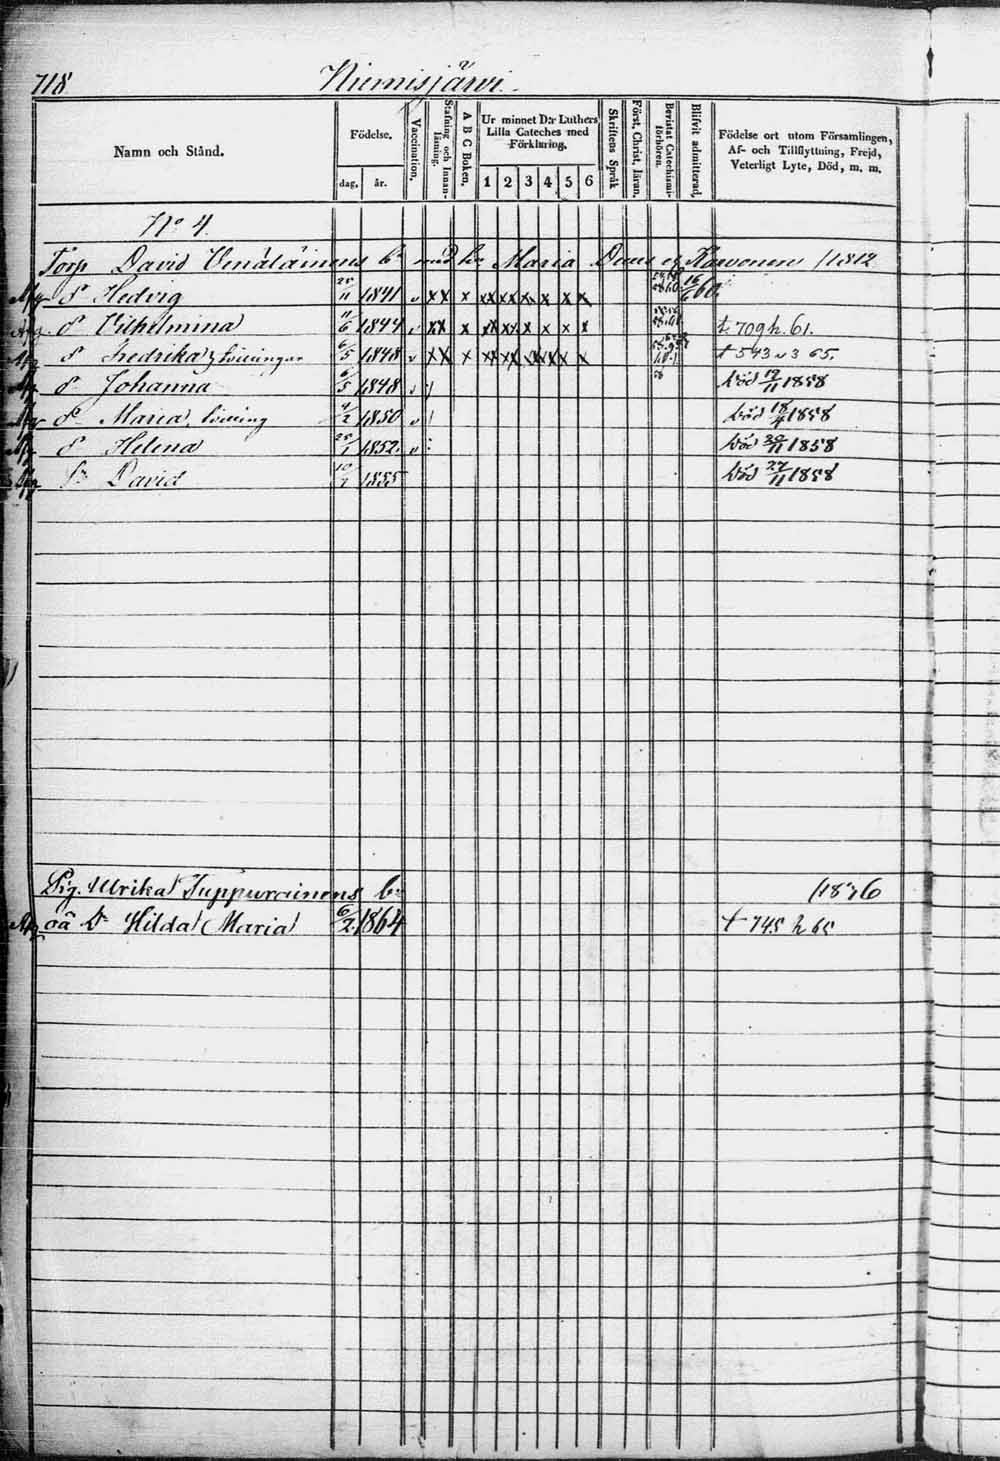 718 Niemisjärvi.
Namn och Stånd. Födelse. dag. år. Vaccination. Stafning och Innanläsning. A B C Boken. Ur minnet D:r Luthers Lilla Cateches med Förklaring. 1 2 3 4 5 6 Skriftens Språk Först. Christ. läran. Bevistat Catechismiförhören. Blifvit admitterad. Födelse ort utom Församlingen, Af- och Tillflyttning, Frejd, Veterligt Lyte, Död, m. m.
No 4.
Torp David Vinäläinens bn med hu Maria Kärvonen /1812
Hedvig 11 1841 v x x x x x x x x x 16/6 60
Vilhelmina 11/6 1844 v x x x x x x x x x t. 709 h. 61.
Fredrika tvillingar 6/5 1848 v x x x x x x x x x t 543 v 3 65.
Johanna 6/5 1848 v död 19/11 1858
Maria, tvilling 4/2 1850 v död 18/11 1858
Helena 28/1 1852. v död 20/11 1858
Sn David 10/7 1855 död 27/11 1858
Pig. Ulrika Tuppurainens bn /1836
oä Dr Hilda Maria 6/2 1864 t 745 h 65